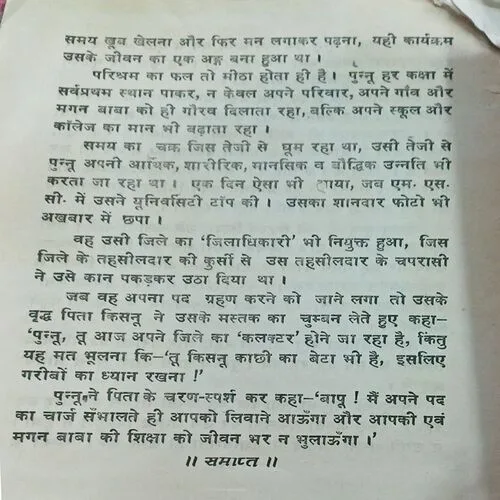 समय खूब खेलना और फिर मन लगाकर पढ़ना, यही कार्यक्रम
उसके जीवन का एक अङ्ग बना हुआ था।
परिश्रम का फल तो मीठा होता ही है। पुन्नू हर कक्षा में
सर्वप्रथम स्थान पाकर, न केवल अपने परिवार, अपने गाँव और
मगन बाबा को ही गौरव दिलाता रहा, बल्कि अपने स्कूल और
कॉलेज का मान भी बढ़ाता रहा।
समय का चक्र जिस तेजी से घूम रहा था, उसी तेजी से
पुन्नू अपनी आर्थिक, शारीरिक, मानसिक व बौद्धिक उन्नति भी
करता जा रहा था। एक दिन ऐसा भी आया, जब एम. एस.
सी. में उसने यूनिवर्सिटी टॉप की। उसका शानदार फोटो भी
अखबार में छपा।
वह उसी जिले का 'जिलाधिकारी' भी नियुक्त हुआ, जिस
जिले के तहसीलदार की कुर्सी से उस तहसीलदार के चपरासी
ने उसे कान पकड़कर उठा दिया था।
जब वह अपना पद ग्रहण करने को जाने लगा तो उसके
वृद्ध पिता किसनू ने उसके मस्तक का चुम्बन लेते हुए कहा-
'पुन्नू, तू आज अपने जिले का 'कलक्टर' होने जा रहा है, किंतु
यह मत भूलना कि-'तू किसनू काछी का बेटा भी है, इसलिए
गरीबों का ध्यान रखना!'
पुन्नू ने पिता के चरण-स्पर्श कर कहा-'बापू! मैं अपने पद
का चार्ज सँभालते ही आपको लिवाने आऊँगा और आपकी एवं
मगन बाबा की शिक्षा को जीवन भर न भुलाऊँगा।'
॥ समाप्त ॥